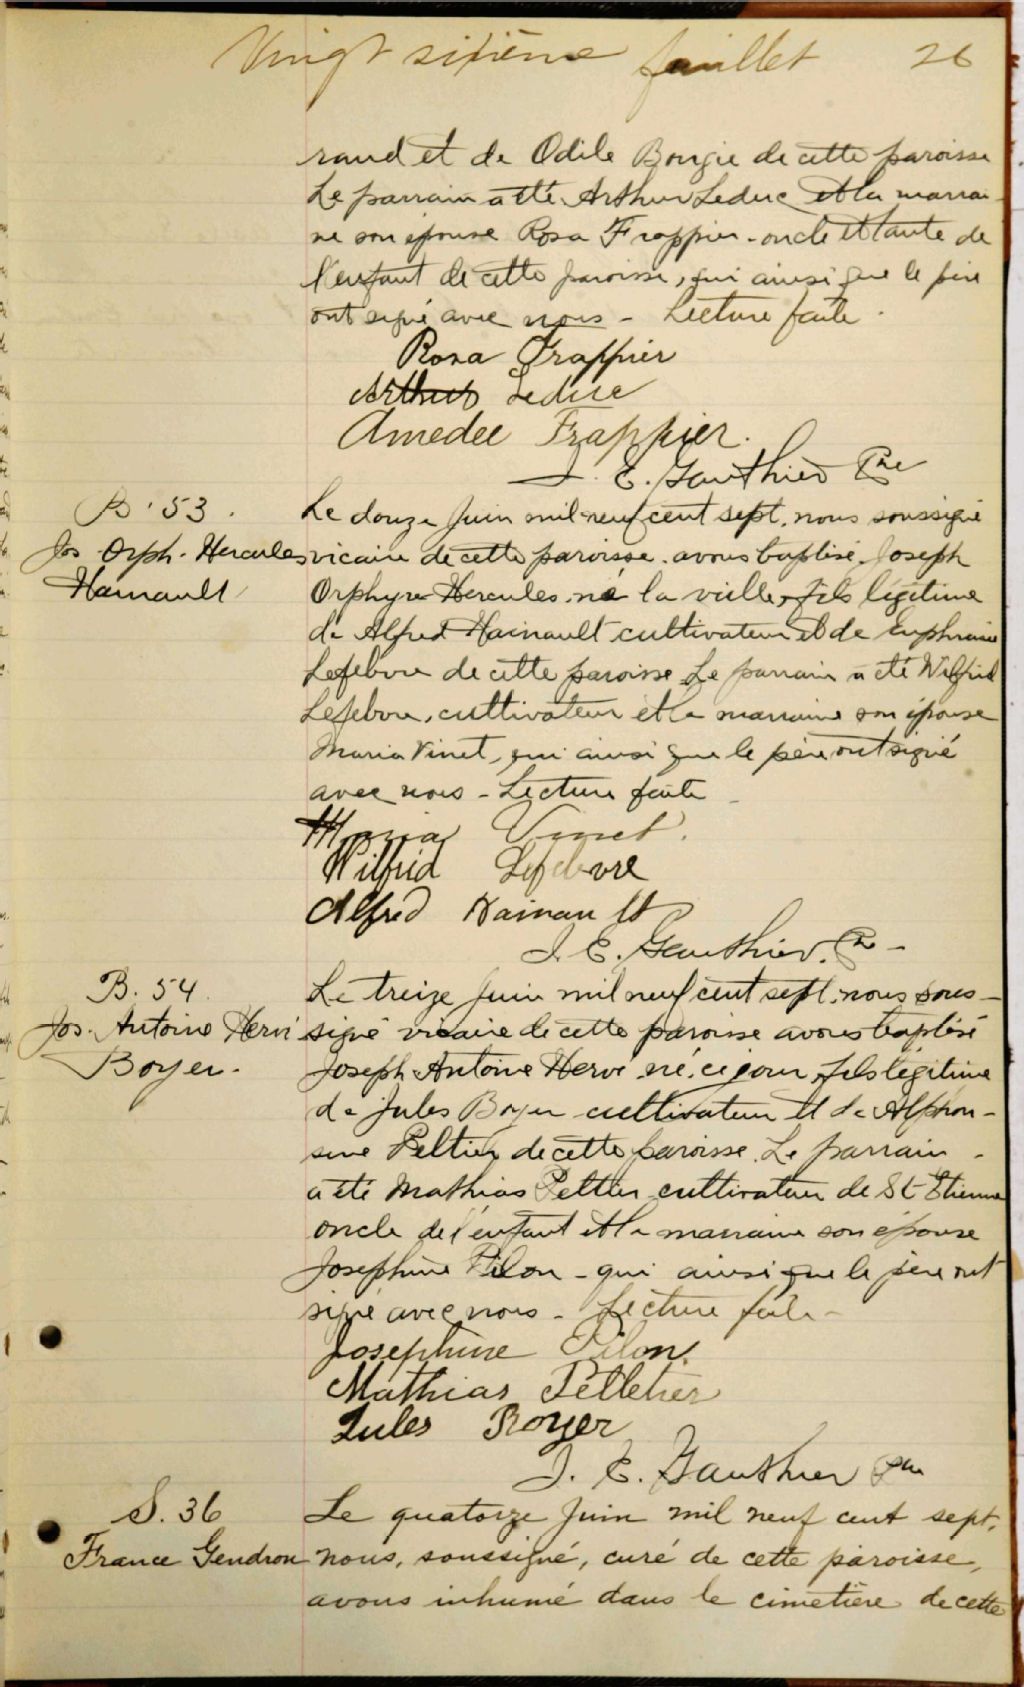 Vingt sixième feuillet 26
raud et de Odile Bougie de cette paroisse
Le parrain a été Arthur Leduc et la marrai-
ne son épouse Rosa Frappier - oncle et tante de
l'enfant de cette paroisse, qui ainsi que le père
ont signé avec nous - Lecture faite.
Rosa Frappier
Arthur Leduc
Amedee Frappier.
J. E. Gauthier Ptre
B. 53.
Jos Orph. Hercules
Hainault
Le douze Juin mil neuf cent sept, nous soussigné
vicaire de cette paroisse avons baptisé Joseph
Orphyr Hercules né la veille, fils légitime
de Alfred Hainault cultivateur et de Euphrasie
Lefebvre de cette paroisse Le parrain a été Wilfrid
Lefebvre, cultivateur et la marraine son épouse
Maria Vinet, qui ainsi que le père ont signé
avec nous - Lecture faite
Maria Vinet.
Wilfrid Lefebvre
Alfred Hainault
J. E. Gauthier. Ptre -
B. 54.
Jos. Antoine Hervé
Boyer.
Le treize Juin mil neuf cent sept, nous sous-
signé vicaire de cette paroisse avons baptisé
Joseph Antoine Hervé né ce jour, fils légitime
de Jules Boyer cultivateur et de Alphon-
sine Peltier de cette paroisse. Le parrain
a été Mathias Peltier cultivateur de St-Etienne
oncle de l'enfant et la marraine son épouse
Josephine Pilon - qui ainsi que le père ont
signé avec nous - Lecture faite -
Josephine Pilon
Mathias Pelletier
Jules Boyer
J. E. Gauthier Ptre
S. 36
France Gendron
Le quatorze Juin mil neuf cent sept,
nous, soussigné, curé de cette paroisse,
avons inhumé dans le cimetière de cette